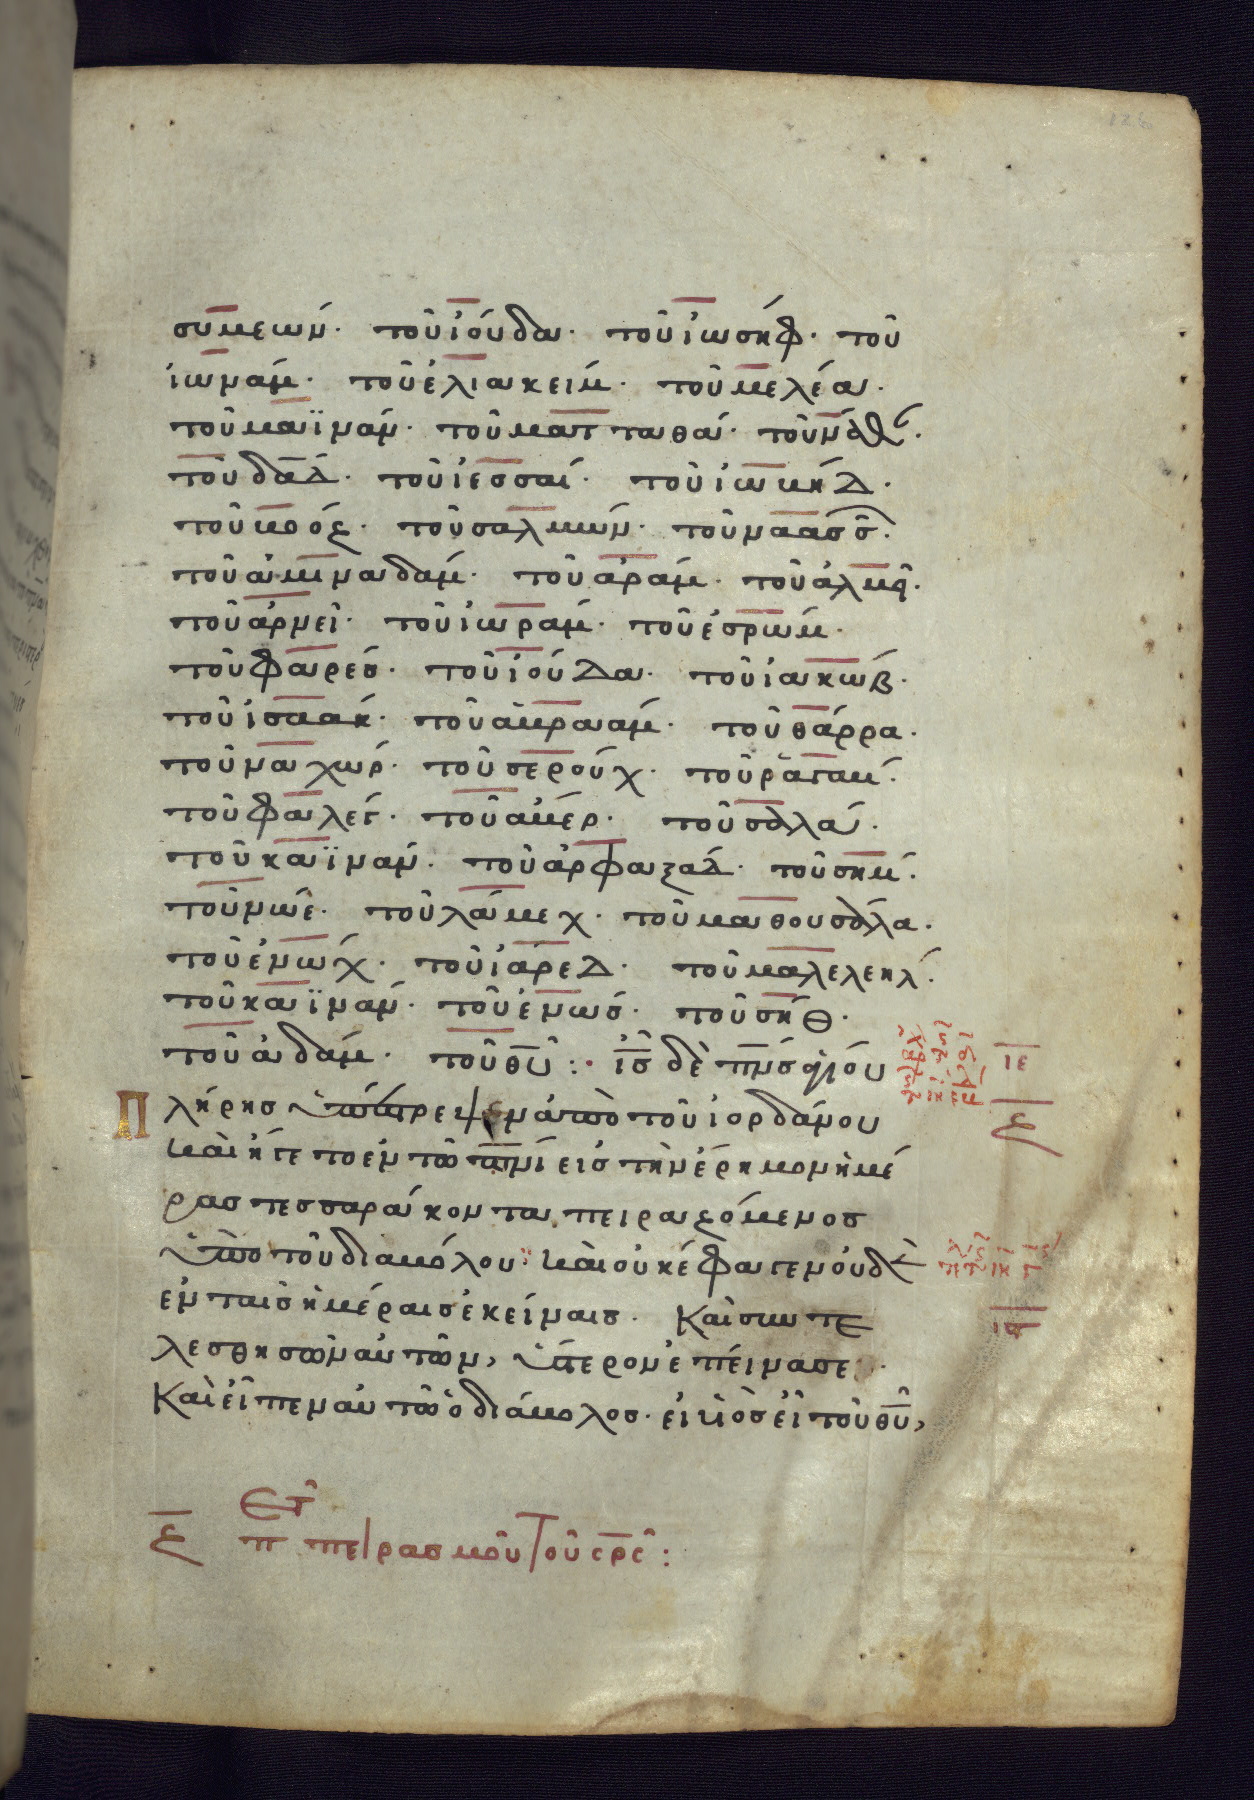 συμεών· τοῦ ἰούδα· τοῦ ἰωσήφ· τοῦ
ἰωνάν· τοῦ ἐλιακείμ· τοῦ μελέα·
τοῦ μαϊνάν· τοῦ ματταθά· τοῦ νάθαν·
τοῦ δαδ· τοῦ ἰεσσαί· τοῦ ἰωβήδ·
τοῦ βοόζ· τοῦ σαλμών· τοῦ ναασσ·
τοῦ ἀμιναδάμ· τοῦ ἀράμ· τοῦ ἀλμὶ·
τοῦ ἀρνεὶ· τοῦ ἰωράμ· τοῦ ἐσρώμ·
τοῦ φάρες· τοῦ ἰούδα· τοῦ ἰακώβ·
τοῦ ἰσαάκ· τοῦ ἀβραάμ· τοῦ θάρρα·
τοῦ ναχώρ· τοῦ σερούχ· τοῦ ῥαγαύ·
τοῦ φάλεγ· τοῦ ἀβέρ· τοῦ σαλά·
τοῦ καϊνάν· τοῦ ἀρφαξάδ· τοῦ σήμ·
τοῦ νῶε· τοῦ λάμεχ· τοῦ μαθουσάλα·
τοῦ ἐνώχ· τοῦ ἰάρεδ· τοῦ μαλελεήλ·
τοῦ καϊνάν· τοῦ ἐνώς· τοῦ σήθ·
τοῦ ἀδάμ· τοῦ θῦ:· ἰς δὲ πνς ἁγίου
Πλήρης ὑπέστρεψεν ἀπὸ τοῦ ἰορδάνου
καὶ ἤγετο ἐν τῶ πνι εἰς τὴν ἔρημον ἡμέ
ρας τεσσαράκοντα πειραζόμενος
ὑπὸ τοῦ διαβόλου· καὶ οὐκ ἔφαγεν οὐδὲν
ἐν ταῖς ἡμέραις ἐκείναις· Καὶ συντε
λεσθησῶν αὐτῶν, ὕστερον ἐπείνασε·
Καὶ εἶπεν αὐτῶ ὁ διάβολος· εἰ υἱὸς εἶ τοῦ θῦ,
ιε
ιϛ